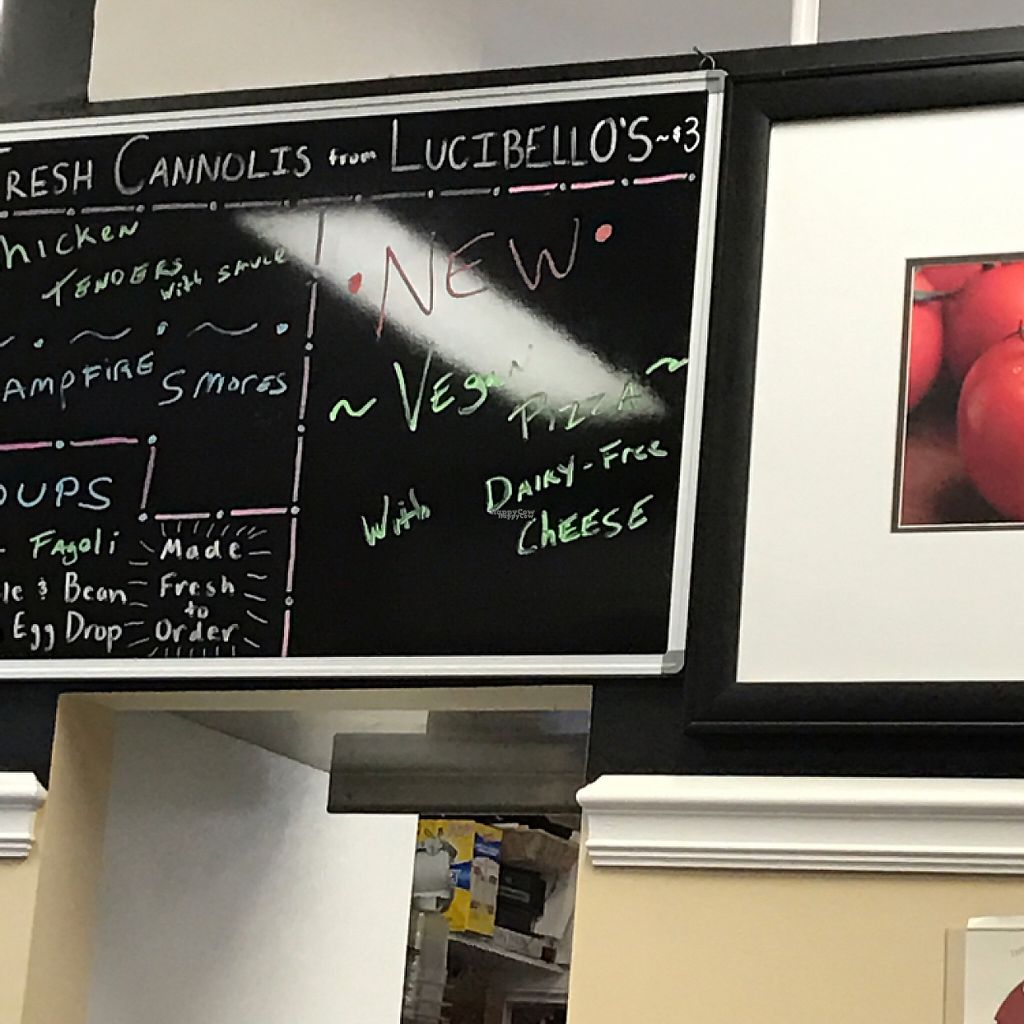 FRESH CANNOLIS from LUCIBELLO'S ~ $3
hicken
TENDERS
with SAUCE
AMPFIRE SMORES
OUPS
Fagoli
le & Bean
Egg Drop
Made
Fresh
to
Order
NEW
~ VEgan PIZZA ~
With DAIRY-FREE
CHEESE
HappyCow
HappyCow